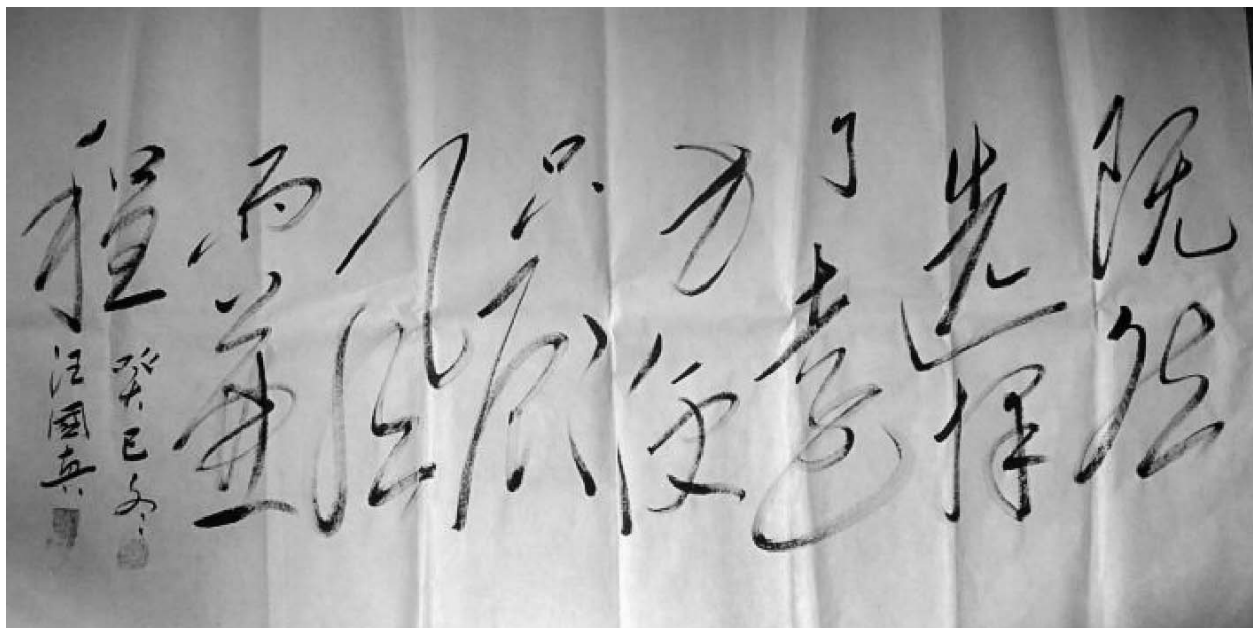 既然
选择
了遠
方便
只顧
風
雨兼
程
癸巳冬
汪國真